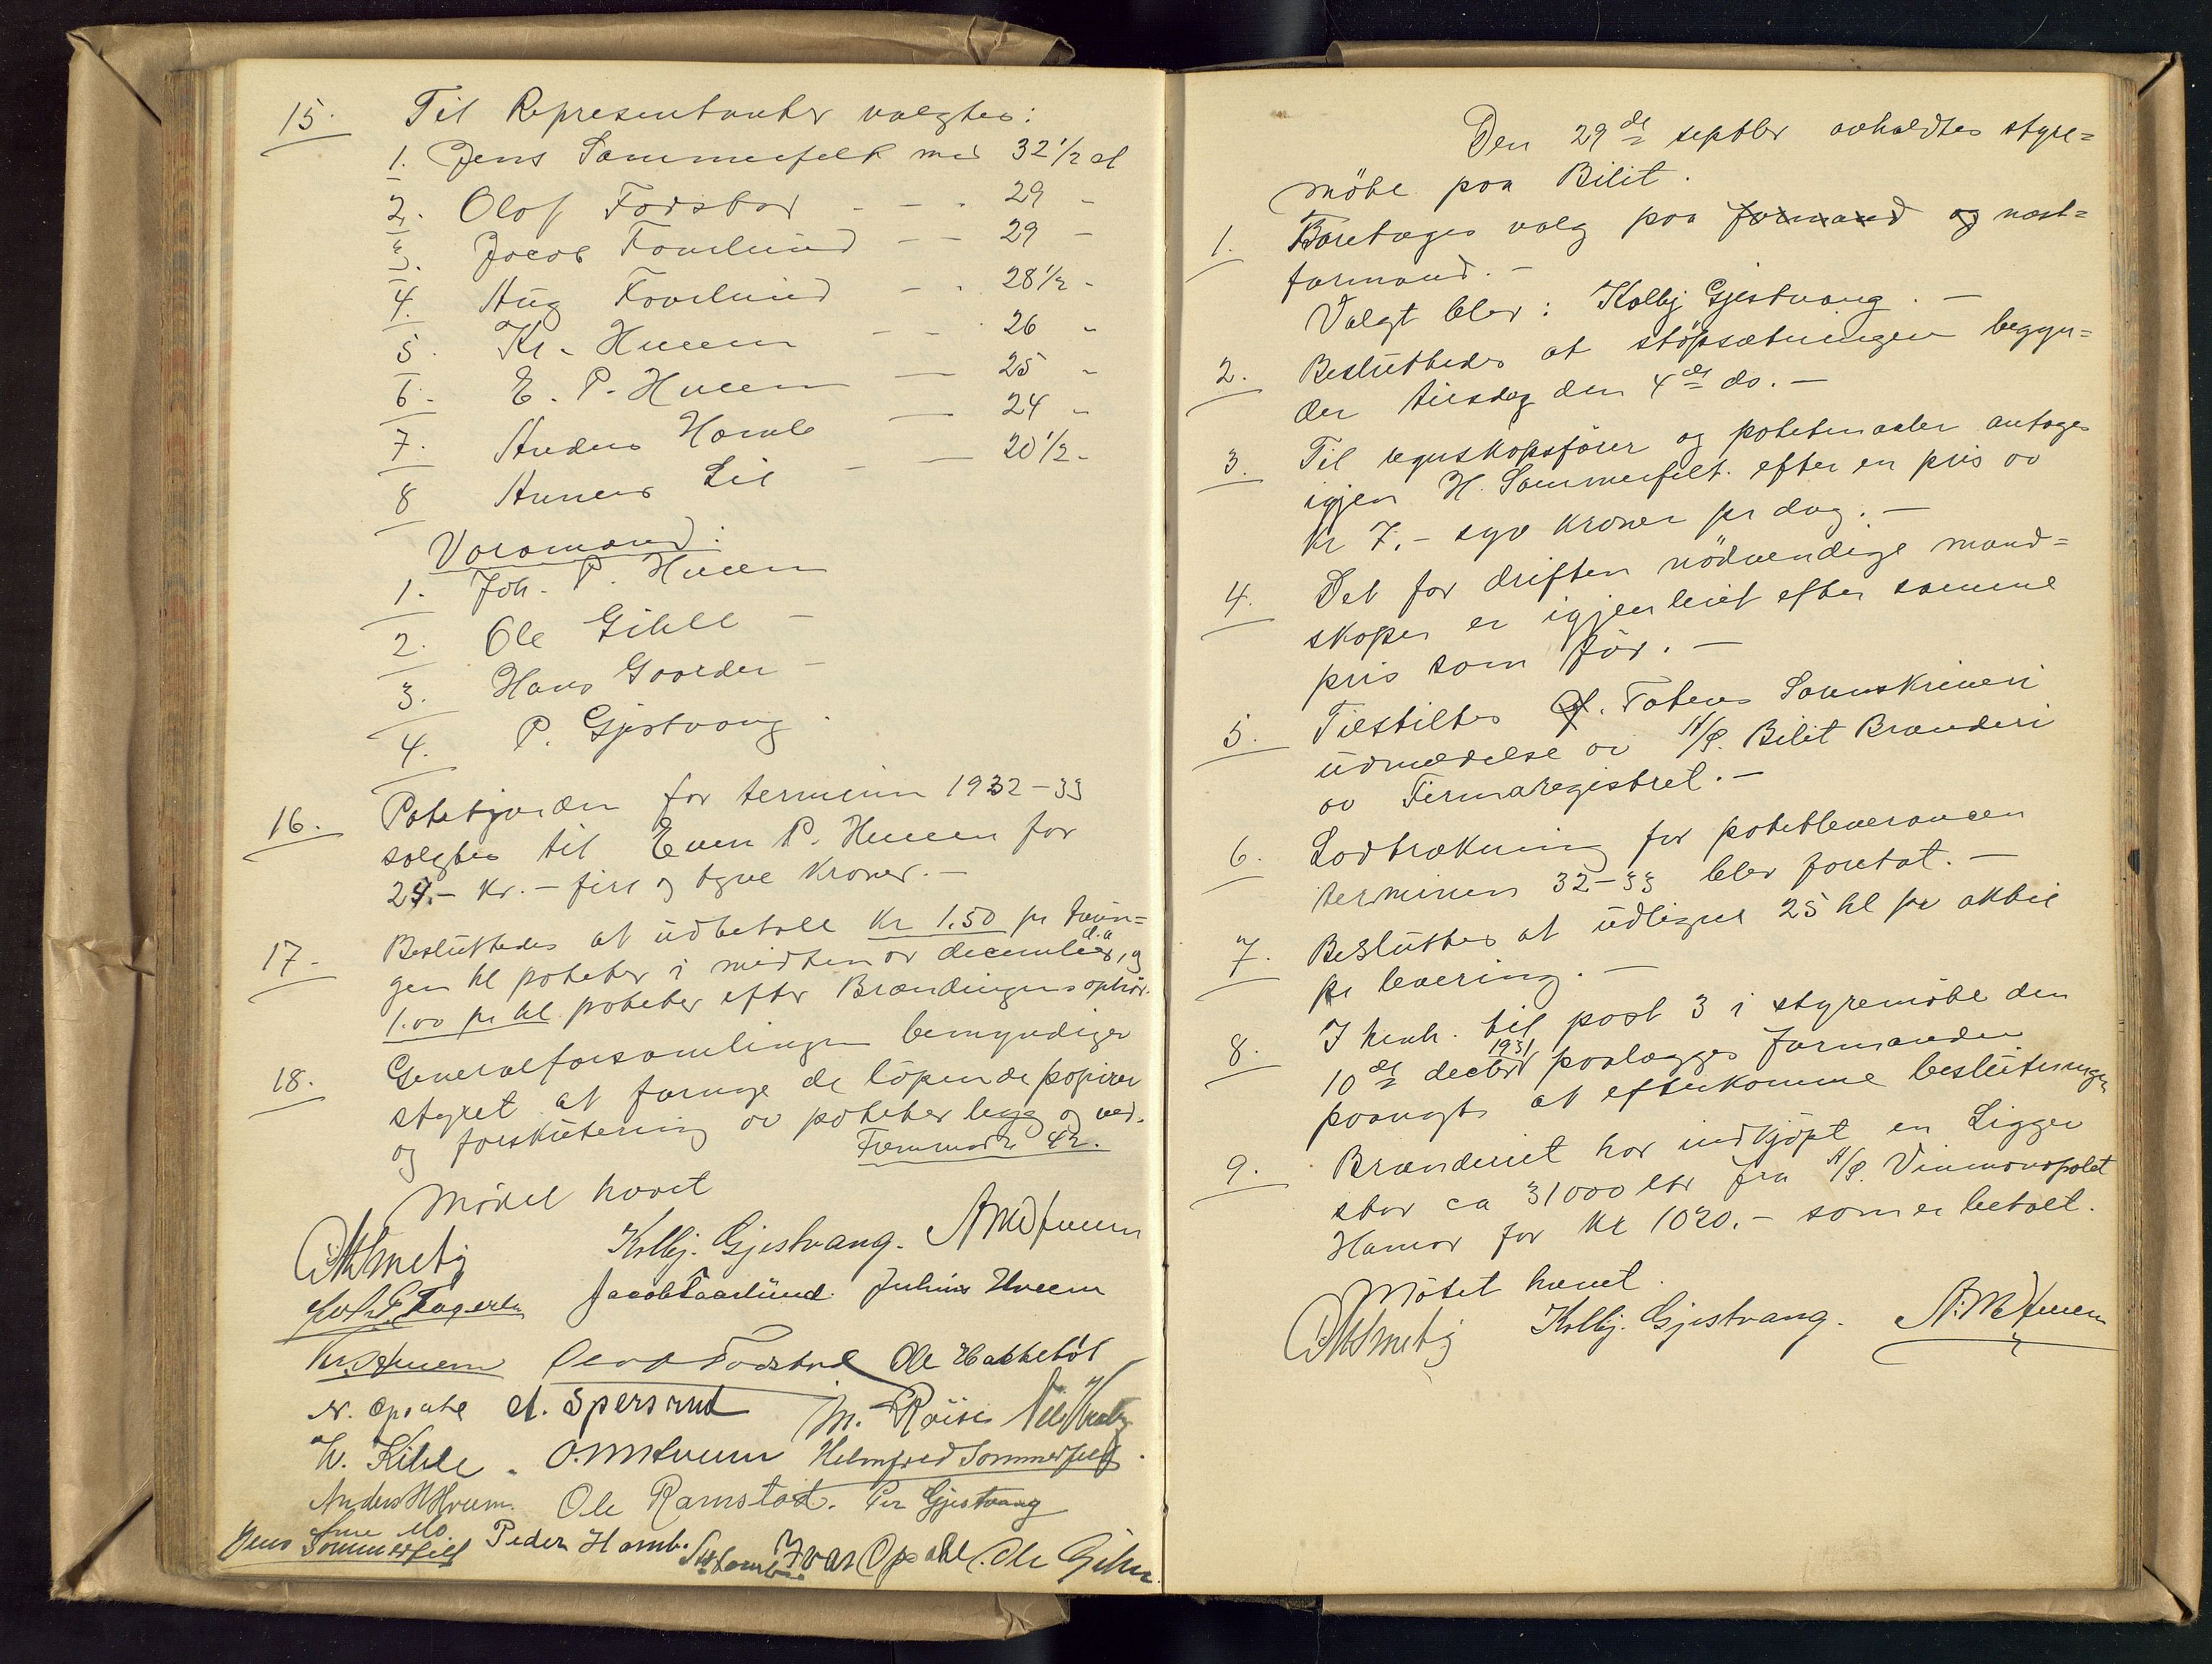 15. Til Representanter valgtes:
1. Jens Sommerfelt med 32 1/2 st
2. Olof Fodstad - - - 29 -
3. Jacob Faarlund - - 29 -
4. Aug Faarlund - - 28 1/2 -
5. Kr. Hveem - - 26 -
6. E. P. Hveem - 25 -
7. Anders Homb - 24 -
8 Anners Lie - - 20 1/2 -
Varamænd:
1. Joh. P. Hveem
2. Ole Gihle -
3. Hans Gaarder -
4. P. Gjestvang.
16. Potetjorden for terminen 1932-33
solgtes til Even P. Hveem for
24.- kr. - fire og tyve kroner. -
17. Besluttedes at utbetale kr 1.50 pr tøn=
gen hl poteter i midten av december d.a, og
1.00 pr hl poteter efter Brændingens ophør.
18. Generalforsamlingen bemyndiger
styret at fornye de løpende papirer
og forskutering av poteter bygg og ved.
Fremmødte 42.
Møtet hævet
Kolbj. Gjestvang. A M Hveem
Jacob Faarlund. Julius Hveem
Kr. Hveem Olof Fodstad Ole Hakketøl
N. Opsahl A. Spersrud M. Røise
W. Kihle. O. M. Hveem Helmfred Sommerfelt.
Anders H Hveem. Ole Ramstad. Per Gjestvang
Arne Mo.
Jens Sommerfelt Peder Homb. Ivar Opsahl. Ole Gihle.
Den 29de septbr avholdtes styre=
møte paa Bilit.
1. Foretages valg paa formand og næst=
formand. -
Valgt blev: Kolbj Gjestvang. -
2. Besluttedes at støpsætningen begyn=
der tirsdag den 4de ds. -
3. Til regnskapsfører og potetmaaler antages
igjen H. Sommerfelt. efter en pris av
kr 7.- syv kroner pr dag. -
4. Det for driften nødvendige mand=
skaper er igjen leiet efter samme
pris som før. -
5. Tilstiltes Ø. Totens Sorenskriveri
utmeldelse av A/S. Bilit Brænderi
av Firmaregistret. -
6. Lodtrækning for potetleverancen
terminen 32-33 blev foretat. -
7. Besluttes at utligne 25 hl pr aktie
pr levering. -
8. I henh. til post 3 i styremøte den
10de decbr 1931 paalægges formanden
at efterkomme beslutningen
9. Brænderiet har indkjøpt en Ligger
stor ca 31000 ltr fra A/S. Vinmonopolet
Hamar for kr 1020.- som er betalt.
Møtet hævet.
Kolbj. Gjestvang. A. M. Hveem